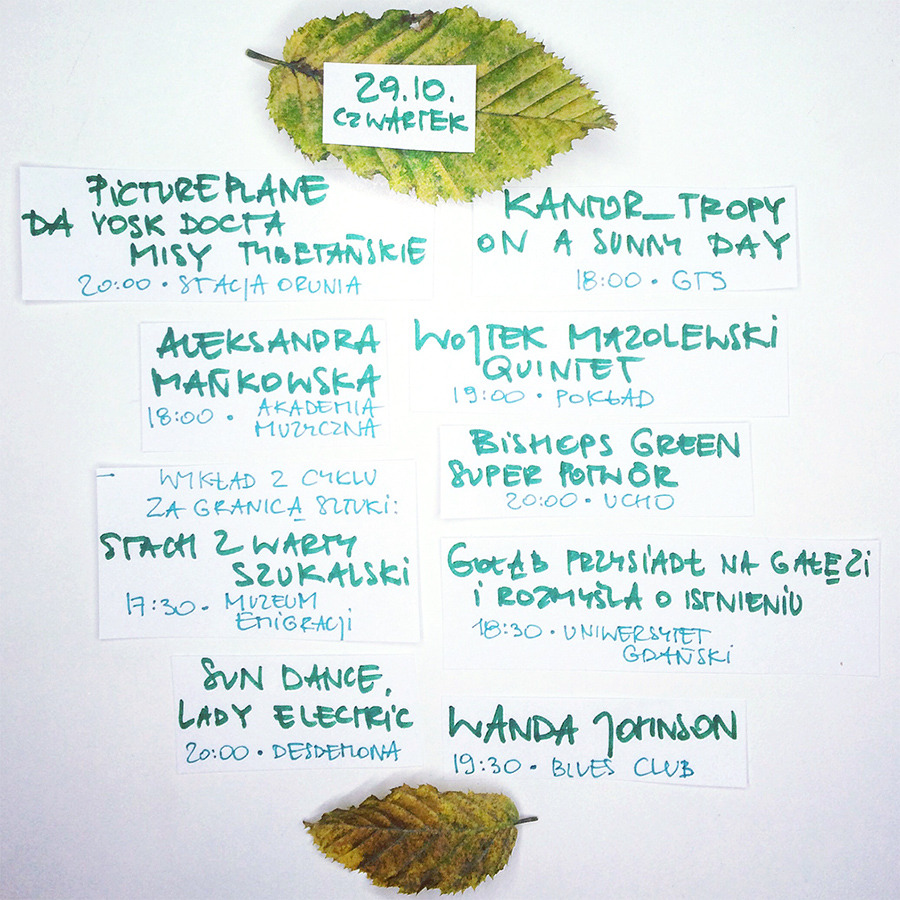 29.10.
CZWARTEK
PICTUREPLANE
DA VOSK DOCTA
MISY TYBETAŃSKIE
20:00 • STACJA ORUNIA
KANTOR_TROPY
ON A SUNNY DAY
18:00 • GTS
ALEKSANDRA
MAŃKOWSKA
18:00 • AKADEMIA
MUZYCZNA
WOJTEK MAZOLEWSKI
QUINTET
19:00 • POKŁAD
BISHOPS GREEN
SUPER POTWÓR
20:00 • UCHO
WYKŁAD Z CYKLU
ZA GRANICĄ SZTUKI:
STACH Z WARTY
SZUKALSKI
17:30 • MUZEUM
EMIGRACJI
GOŁĄB PRZYSIADŁ NA GAŁĘZI
I ROZMYŚLA O ISTNIENIU
18:30 • UNIWERSYTET
GDAŃSKI
SUN DANCE,
LADY ELECTRIC
20:00 • DESDEMONA
WANDA JOHNSON
19:30 • BLUES CLUB